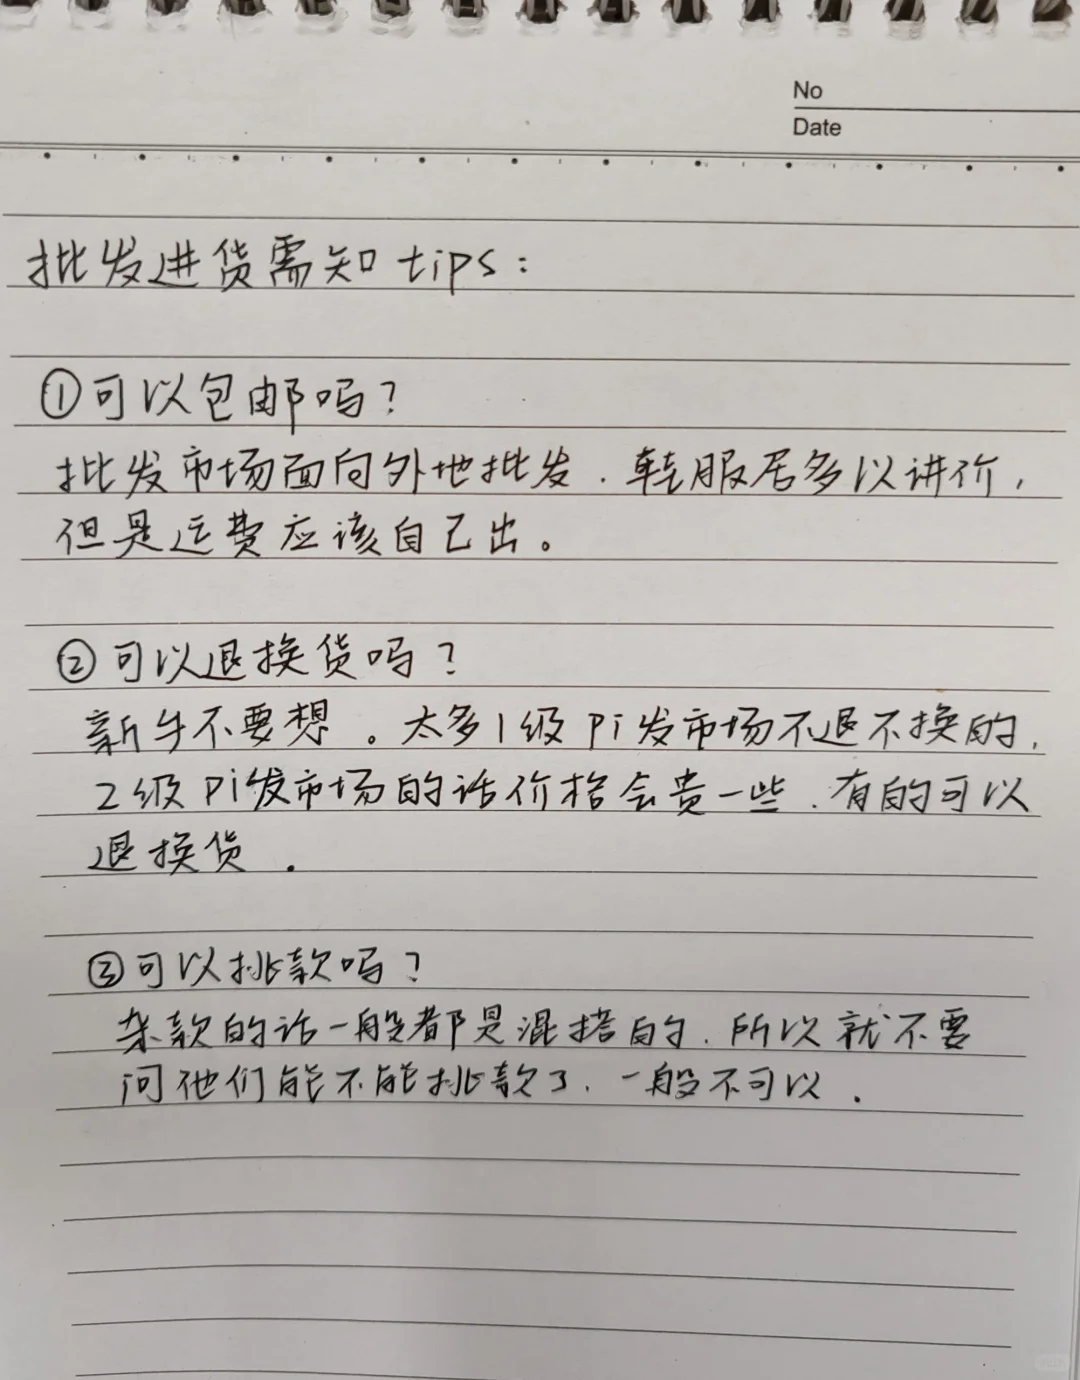 No
Date
批发进货需知tips：
①可以包邮吗？
批发市场面向外地批发．鞋服居多以讲价，
但是运费应该自己出。
②可以退换货吗？
新手不要想。太多1级Pi发市场不退不换的，
2级Pi发市场的话价格会贵一些．有的可以
退换货．
③可以挑款吗？
杂款的话一般都是混搭的．所以就不要
问他们能不能挑款了．一般不可以．